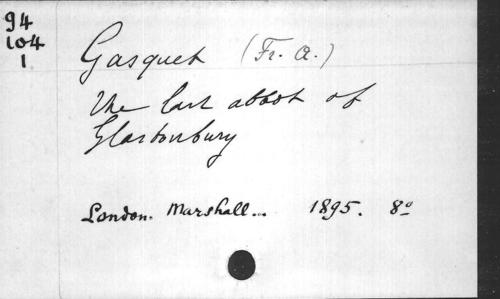 94
104
1
Gasquet (Fr. A.)
The last abbot of
Glastonbury
London. Marshall... 1895. 8º